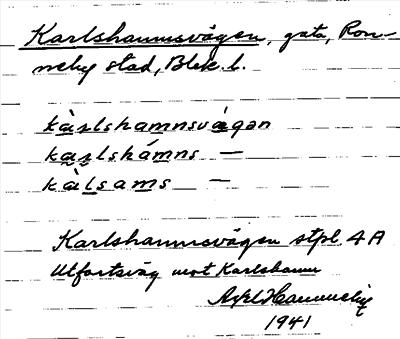 Karlshamnsvägen, gata, Ron-
neby stad, Blek. l.
kàrlshamnsvágan
karlshámns —
kàlsams —
Karlshamnsvägen stpl. 4A
Utfartsväg mot Karlshamn
Axel Hannerberg
1941